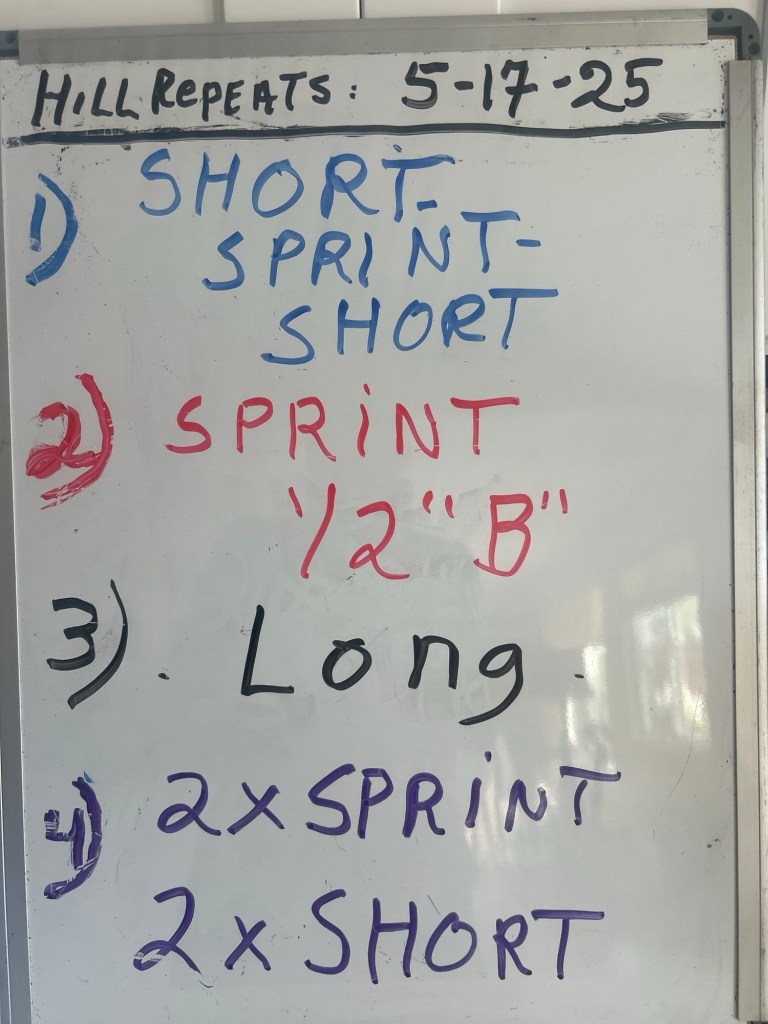 HILL REPEATS: 5-17-25
1) SHORT-
SPRINT-
SHORT
2) SPRINT
1/2 "B"
3). Long.
4) 2x SPRINT
2x SHORT